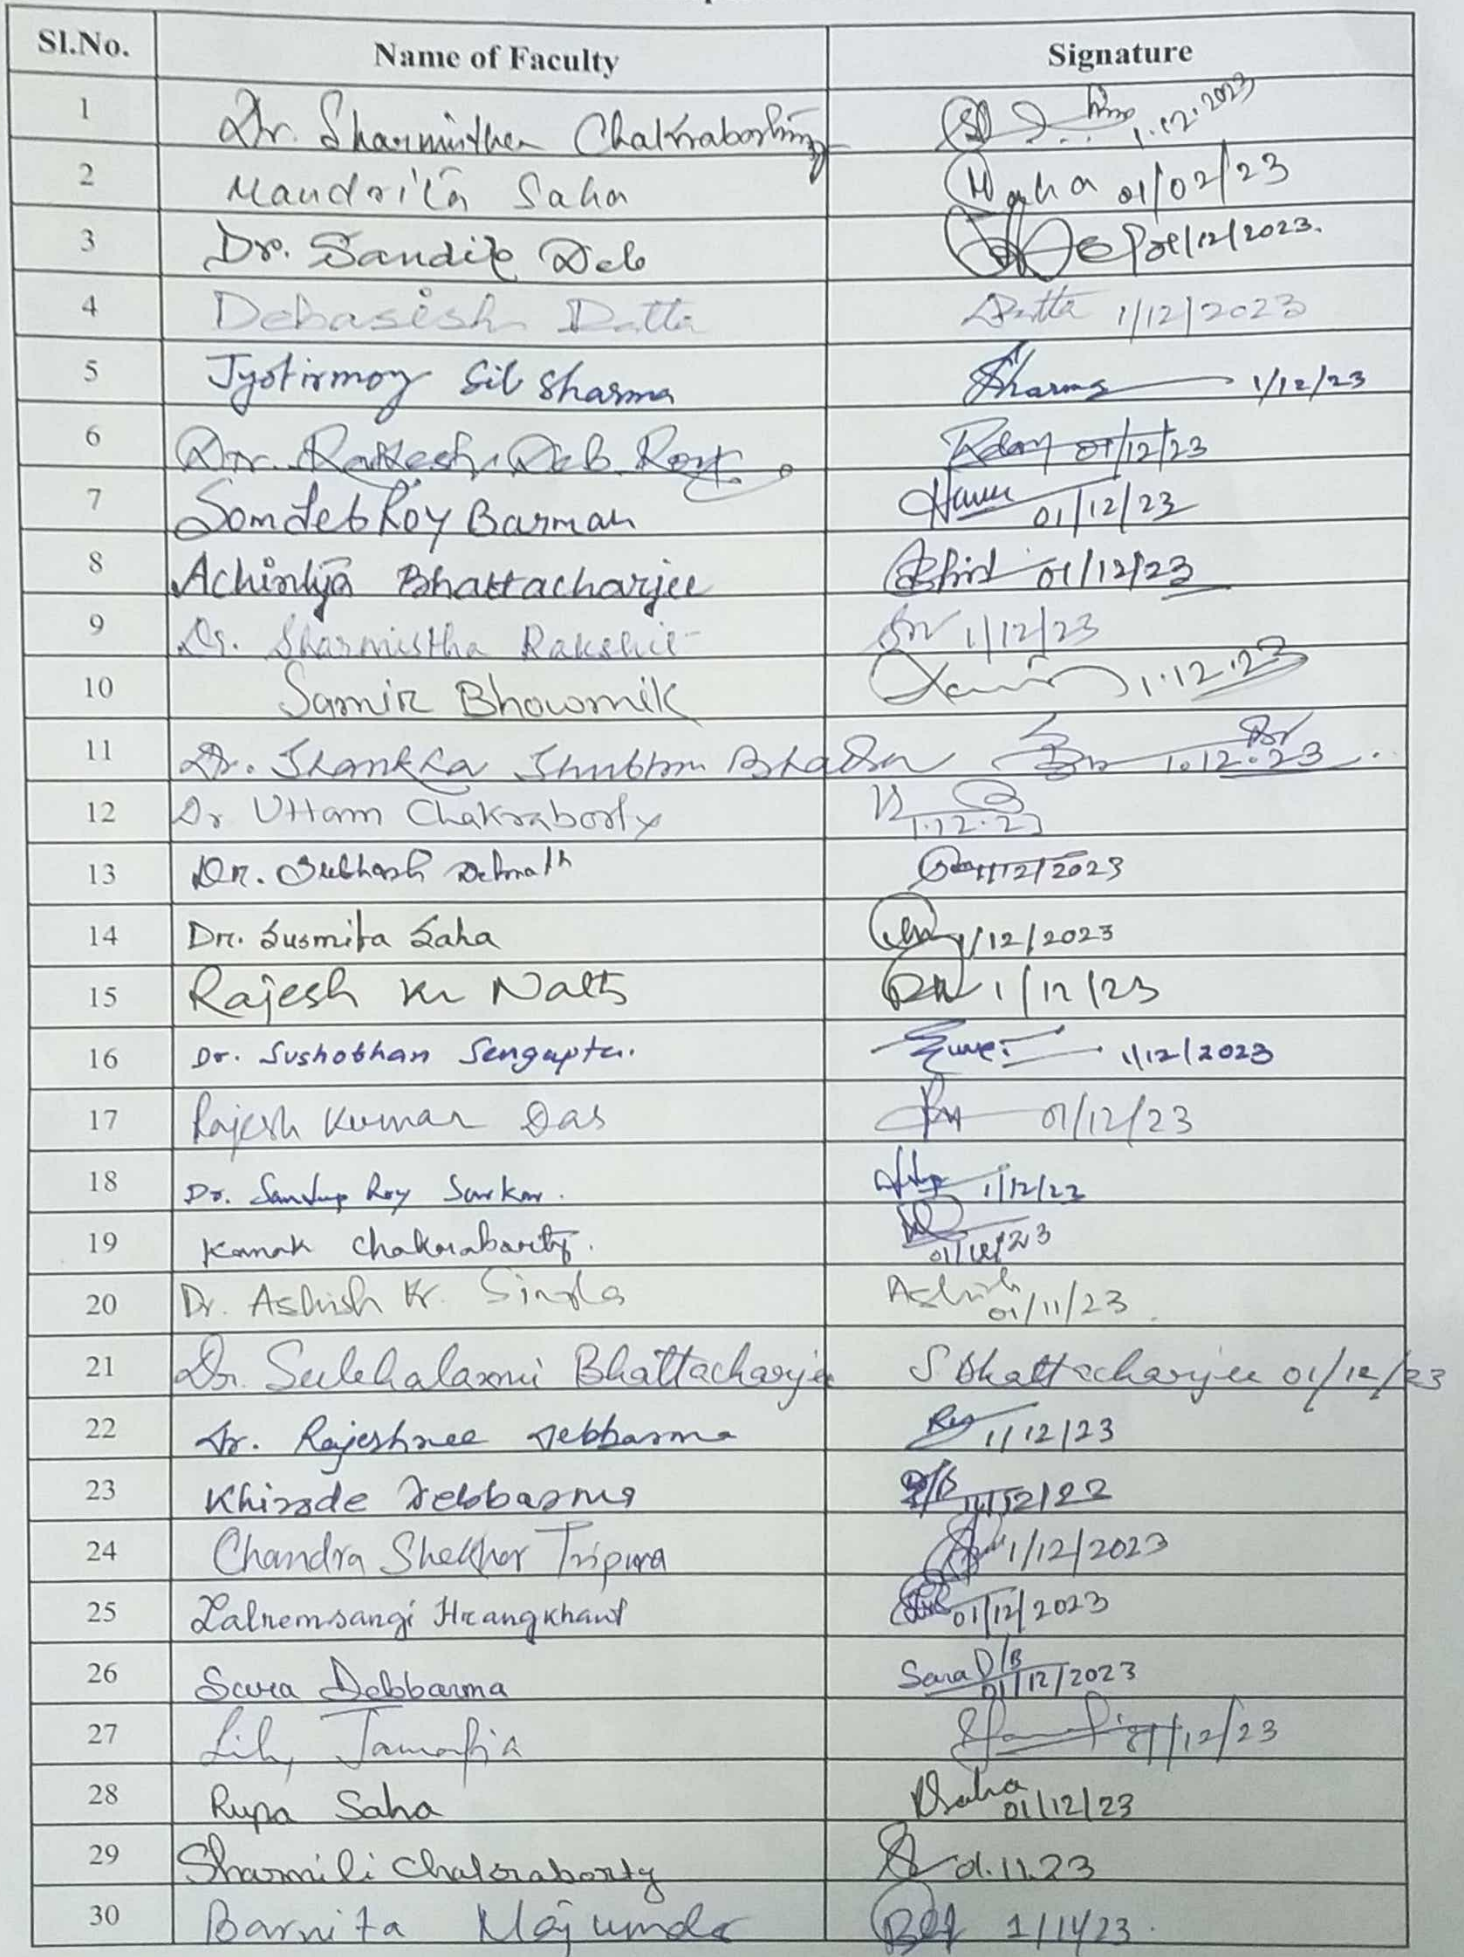 Sl.No. Name of Faculty Signature
1 Dr. Sharmistha Chakraborting 1.12.2023
2 Mandrita Saha Saha 01/02/23
3 Dr. Sandip Deb 01/12/2023.
4 Debasish Datta Datta 1/12/2023
5 Jyotirmoy Sil Sharma Sharma 1/12/23
6 Dr. Rakesh Deb Roy. RdRoy 01/12/23
7 Somdeb Roy Barman 01/12/23
8 Achintya Bhattacharjee 01/12/23
9 Dr. Sharmistha Rakshit 1/12/23
10 Samir Bhowmik 1.12.23
11 Dr. Shankha Shubhra 1.12.23
12 Dr Uttam Chakraborty 1.12.23
13 Dr. Subhash Debnath 1/12/2023
14 Dr. Susmita Saha 1/12/2023
15 Rajesh Kr Nath RN 1/12/23
16 Dr. Sushobhan Sengupta. 1/12/2023
17 Rajesh Kumar Das 01/12/23
18 Dr. Sandip Roy Sarkar. 1/12/23
19 Kanak Chakrabarty. 01/12/23
20 Dr. Ashish Kr. Singha Ashish 01/11/23
21 Dr. Sulekhalaxmi Bhattacharjee S Bhattacharjee 01/12/23
22 Dr. Rajeshree Debbarma 1/12/23
23 Khirode Debbarma 12/22
24 Chandra Shekhor Tripura 1/12/2023
25 Lalremsangi Hrangkhawl 01/12/2023
26 Sara Debbarma Sara D/B 01/12/2023
27 Lily Jamatia 01/12/23
28 Rupa Saha RSaha 01/12/23
29 Sharmili Chakraborty 01.11.23
30 Barnita Majumder 1/11/23.